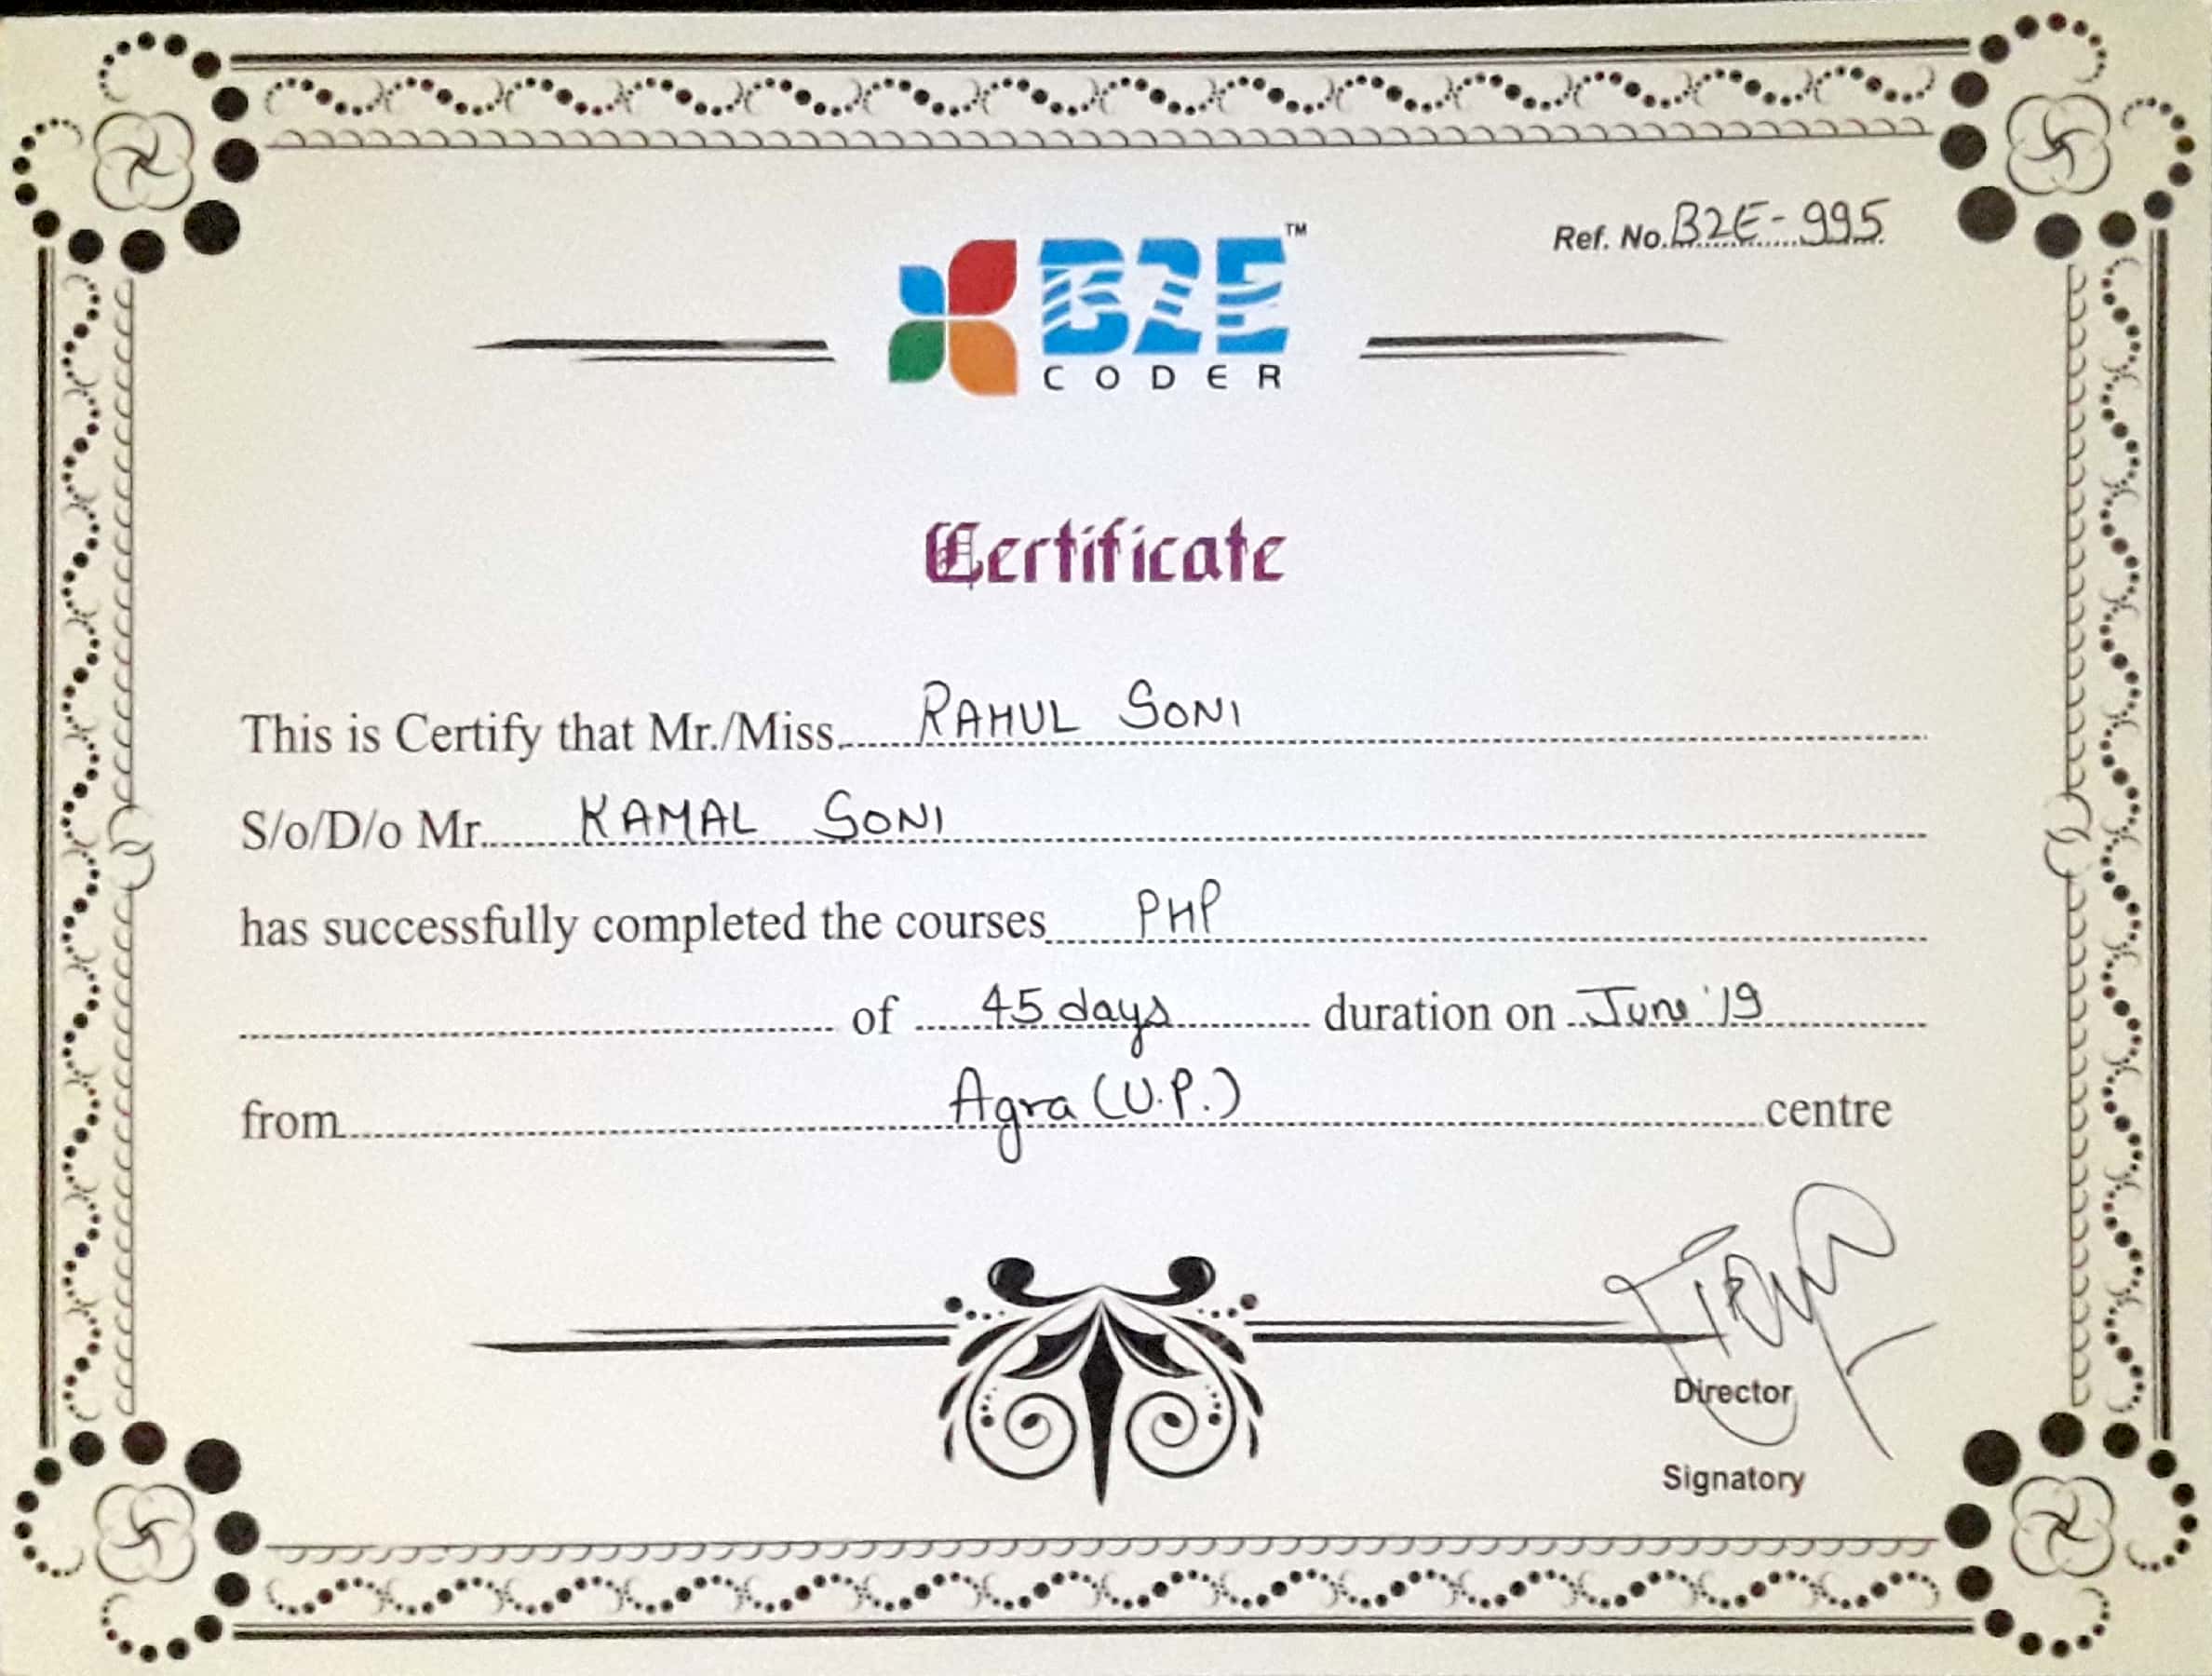 Ref. No. B2E-995
B2E™
CODER
Certificate
This is Certify that Mr./Miss. RAHUL SONI
S/o/D/o Mr. KAMAL SONI
has successfully completed the courses PHP
of 45 days duration on June '19
from Agra (U.P.) centre
Director
Signatory